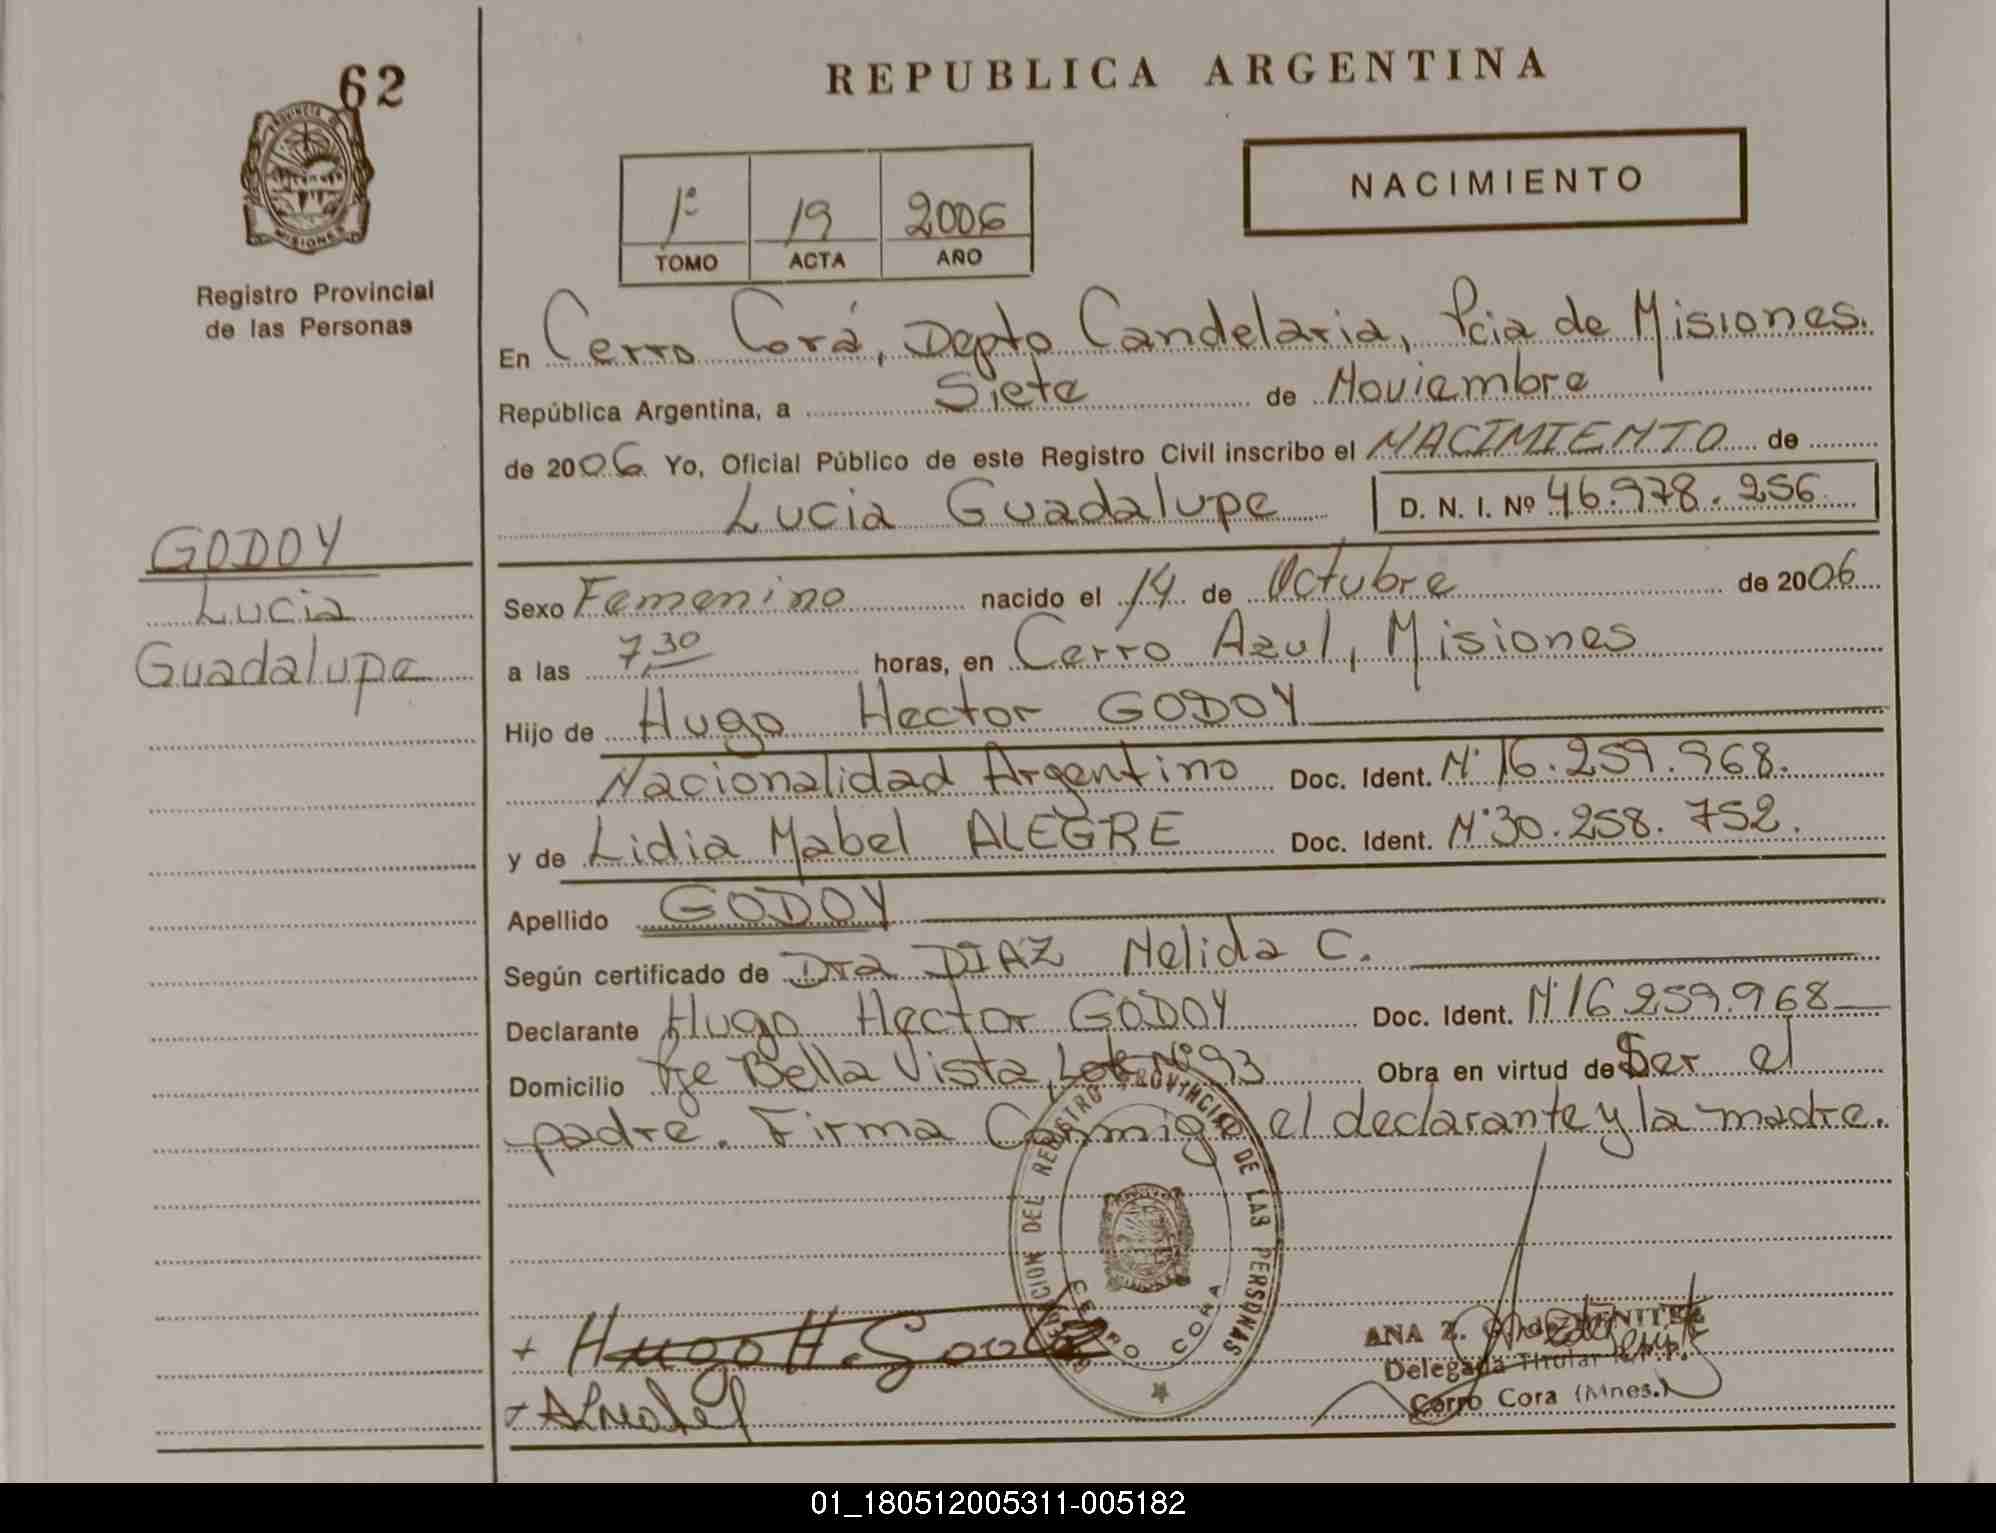 62
PROVINCIA DE
MISIONES
Registro Provincial
de las Personas
GODOY
Lucia
Guadalupe
REPUBLICA ARGENTINA
1º 19 2006
TOMO ACTA AÑO
NACIMIENTO
En Cerro Corá, Depto Candelaria, Pcia de Misiones.
República Argentina, a Siete de Noviembre
de 2006 Yo, Oficial Público de este Registro Civil inscribo el NACIMIENTO de
Lucia Guadalupe D. N. I. Nº 46.978.256
Sexo Femenino nacido el 14 de Octubre de 2006
a las 7,30 horas, en Cerro Azul, Misiones
Hijo de Hugo Hector GODOY
Nacionalidad Argentino Doc. Ident. Nº 16.259.968.
y de Lidia Mabel ALEGRE Doc. Ident. Nº 30.258.752.
Apellido GODOY
Según certificado de Dra DIAZ Nelida C.
Declarante Hugo Hector GODOY Doc. Ident. Nº 16.259.968
Domicilio Pje Bella Vista, Lote Nº 93 Obra en virtud de Ser el
padre. Firma Conmigo el declarante y la madre.
REGISTRO PROVINCIAL DE LAS PERSONAS
CERRO CORA
Hugo H. Godoy
ANA Z.
Delegada Titular R.P.P.
Cerro Cora (Mnes.)
01_180512005311-005182